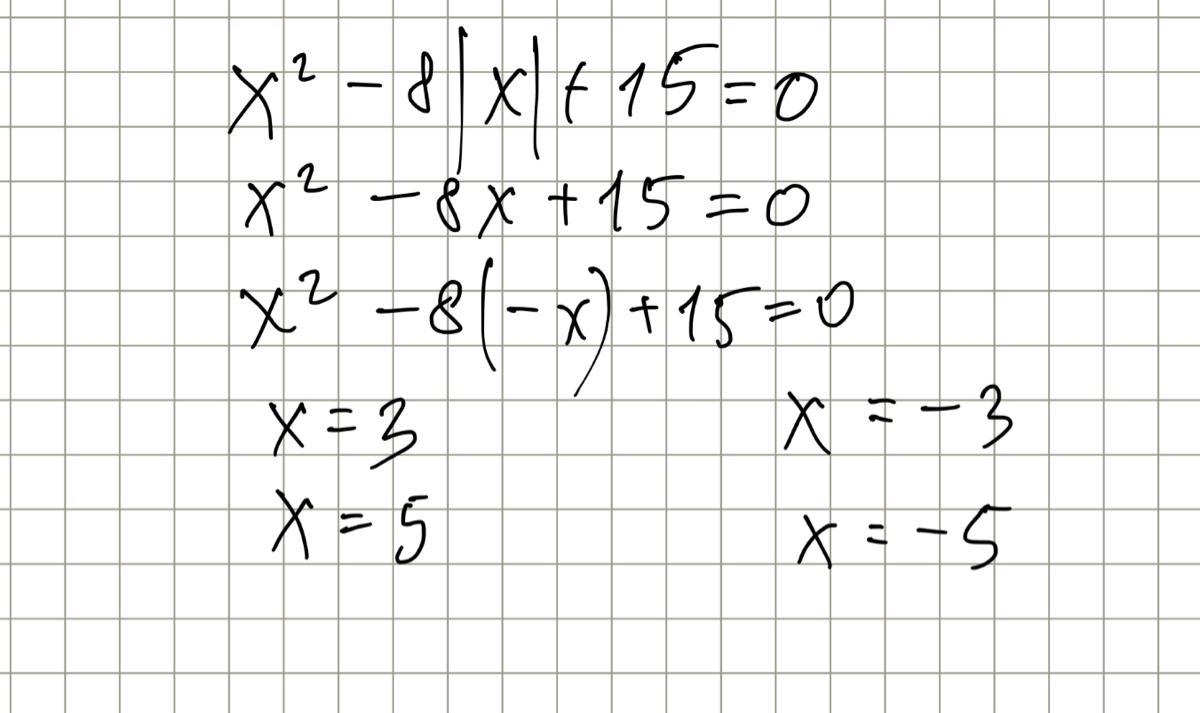 x² - 8|x| + 15 = 0
x² - 8x + 15 = 0
x² - 8(-x) + 15 = 0
x = 3 x = -3
x = 5 x = -5